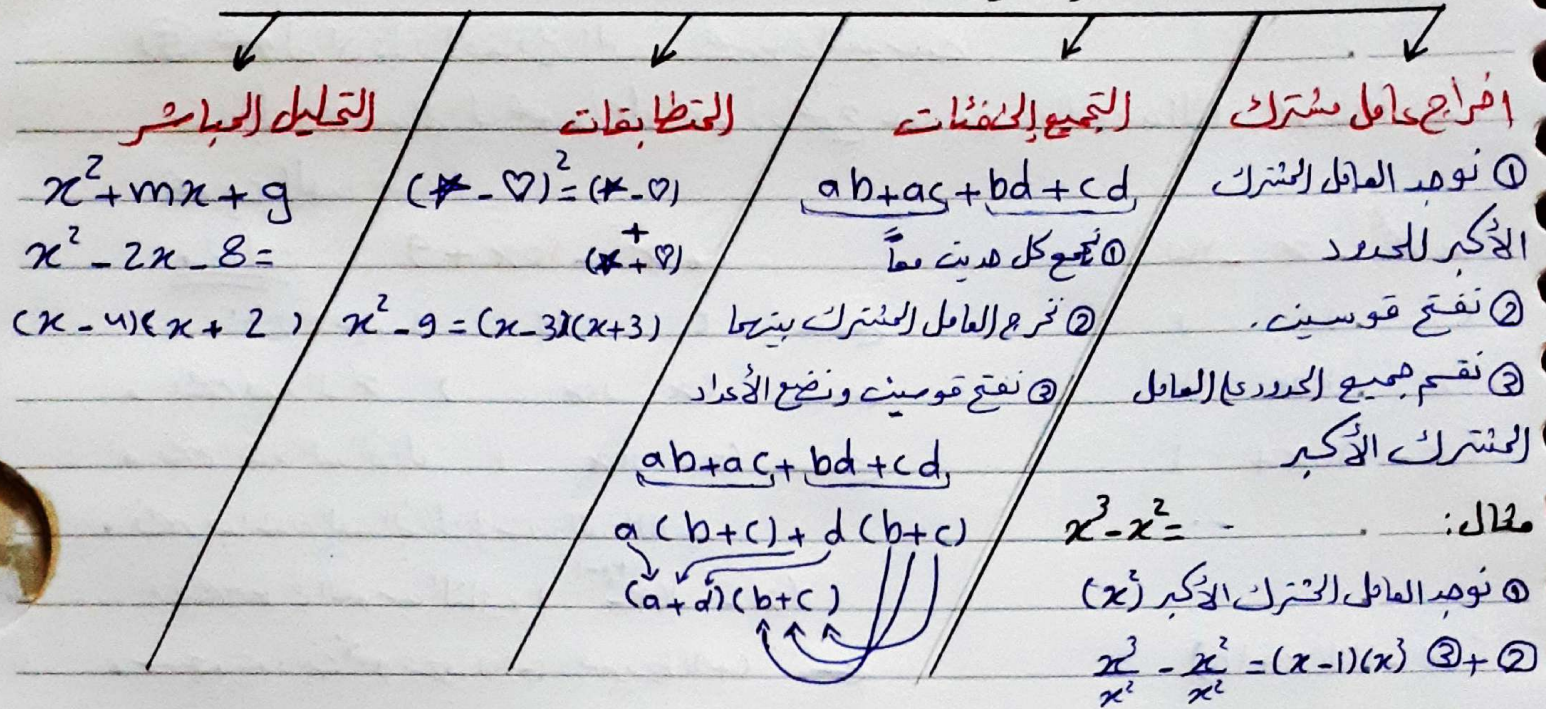 اخراج عامل مشترك
① نوجد العامل المشترك
الأكبر للحدود
② نفتح قوسين.
③ نقسم جميع الحدود على العامل
المشترك الأكبر
مثال: x³-x²=
① نوجد العامل المشترك الأكبر (x²)
②+③ x³/x² - x²/x² =(x-1)(x²)
التجميع إلى فئات
ab+ac+bd+cd
① نجمع كل حدين معاً
② نخرج العامل المشترك بينهما
③ نفتح قوسين ونضع الأعداد
ab+ac+bd+cd
a(b+c)+d(b+c)
(a+d)(b+c)
المتطابقات
(★-♡)²=(★-♡)
+
(★+♡)
x²-9=(x-3)(x+3)
التحليل المباشر
x²+mx+g
x²-2x-8=
(x-4)(x+2)